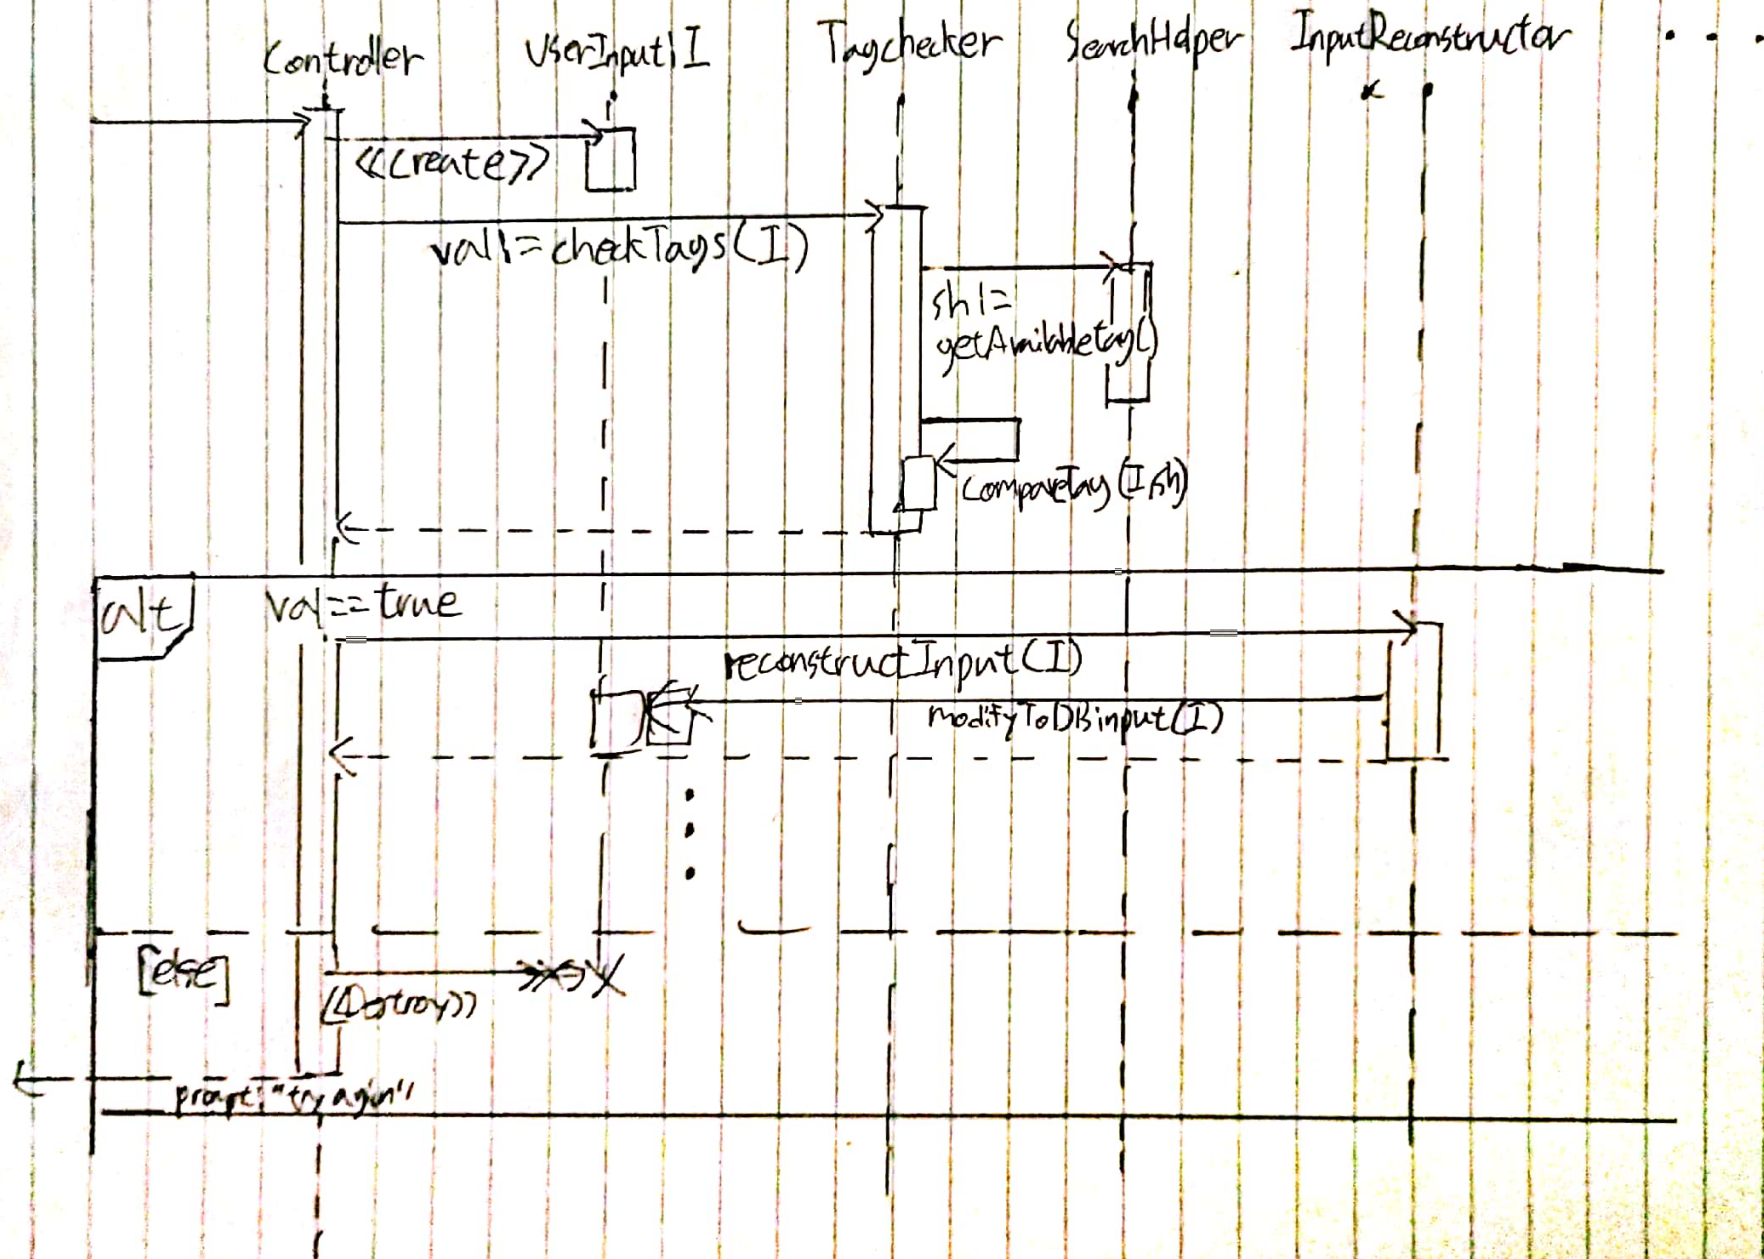 Controller
UserInput:I
Tagchecker
SearchHelper
InputReconstructor
<<Create>>
val1=checkTags(I)
sh1=
getAvailabletag()
CompareTag(I,sh)
alt
val==true
reconstructInput(I)
modifyToDBinput(I)
[else]
<<Destroy>>
prompt:"try again"